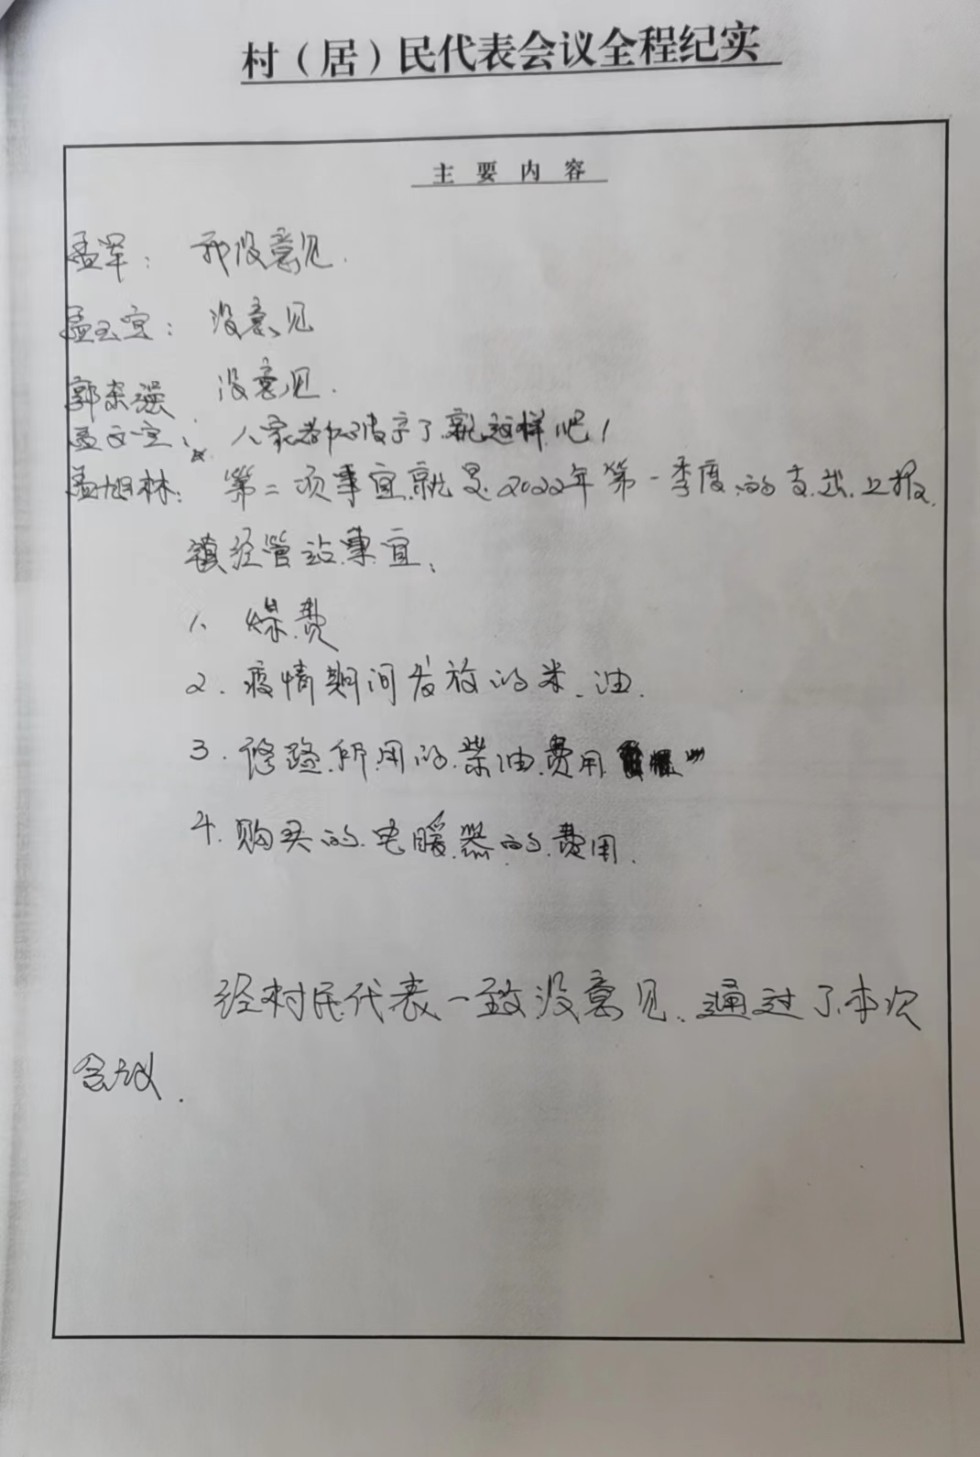 村（居）民代表会议全程纪实
主要内容
孟军： 我没意见.
孟玉宝： 没意见
郭荣强 没意见.
孟文宝： 人家都了就这样吧！
孟旭林： 第二项事宜就是2022年第一季度的支出上报
镇经管站事宜.
1、煤费
2. 疫情期间发放的米、油.
3. 修路所用的柴油费用
4. 购买的电暖器的费用.
经村民代表一致没意见、通过了本次
会议.